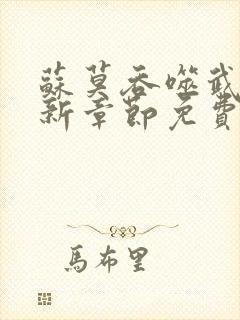 蘇莫吞噬武
新章節免費
馬布里